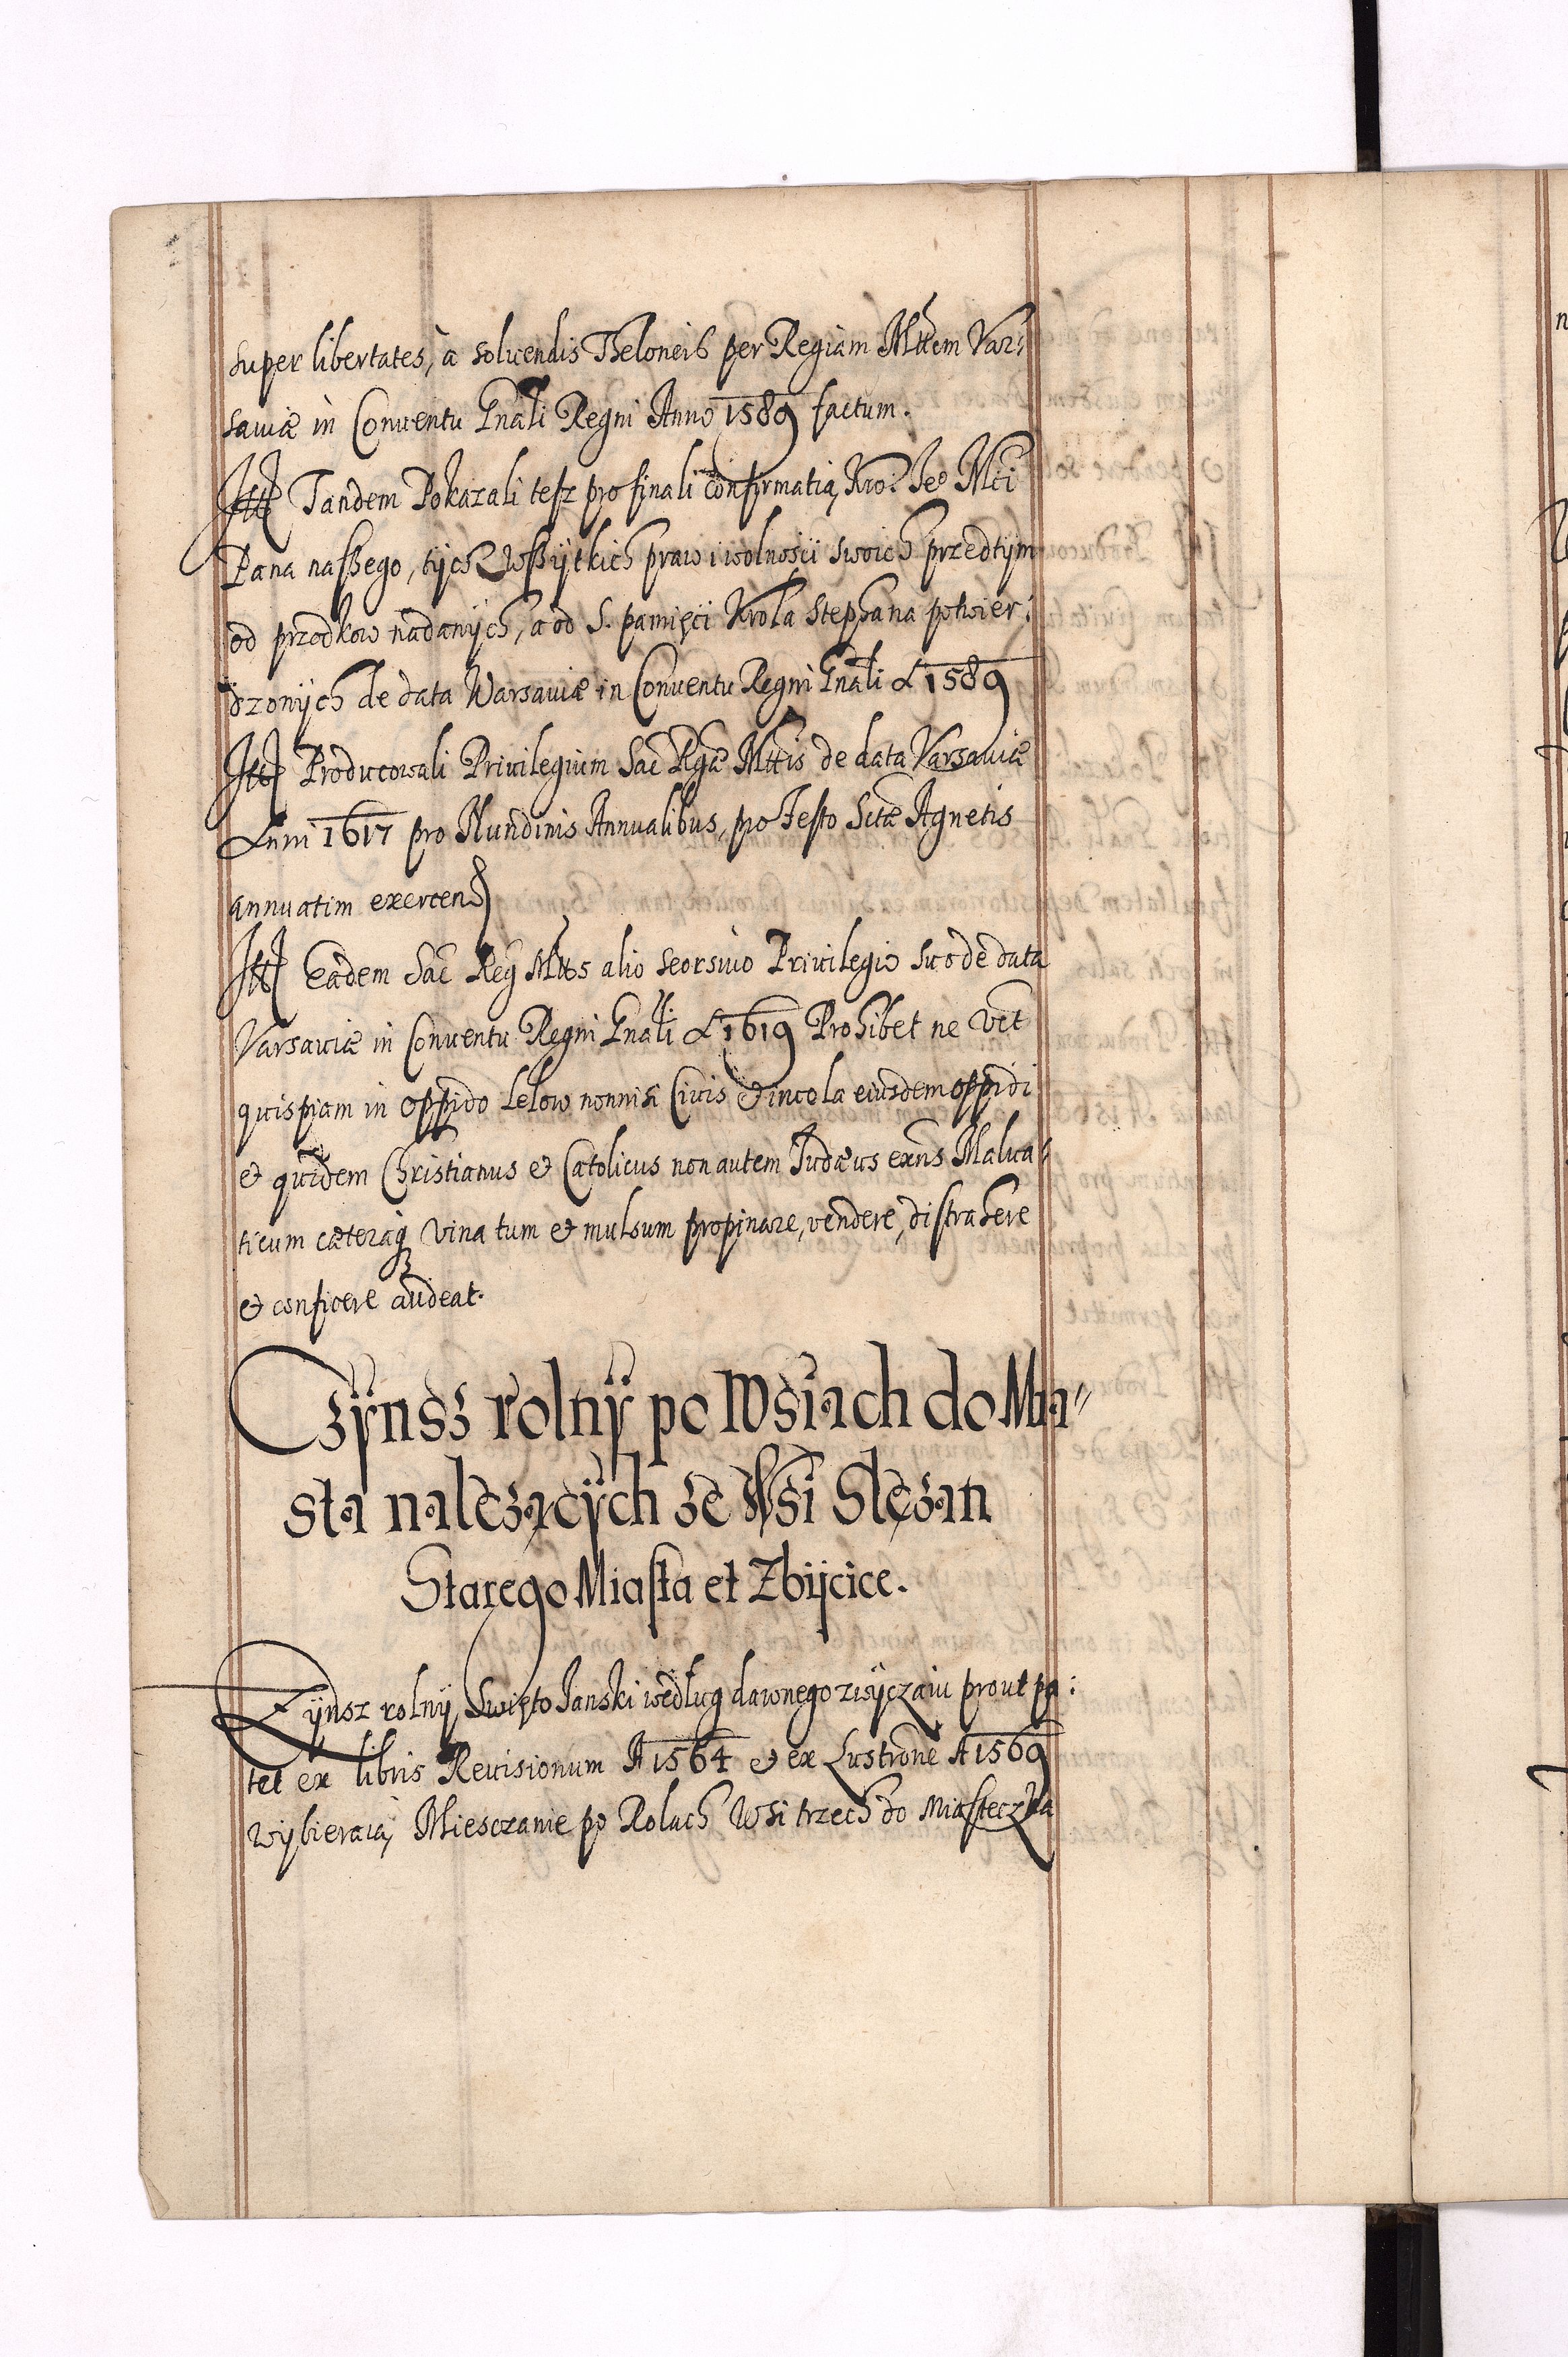 super libertates, à soluendis Theloneis per Regiam Mttem Var:
sauiæ in Conuentu Gnali Regni Anno 1589 factum.
Itt Tandem Pokazali tesz pro finali confirmatią Kro: Jeo Mci
Pana naszego, tÿch wszÿtkich praw i wolnoscii swoich przedtÿm
od przodkow nadanÿch, a od S. pamięci Krola Stephana potwier:
dzonÿch de data Warsauiæ in Conuentu Regni Gnali A 1589
Itt Producowali Priuilegium Sac Rgæ Mttis de data Varsauiæ
Anni 1617 pro Nundinis Annualibus, pro Festo Sctæ Agnetis
annuatim exercend
Itt Eadem Sac Reg Mtts alio seorsiuo Priuilegio suo de data
Varsauiæ in Conuentu Regni Gnali A 1619 Prohibet ne Vet
quispiam in oppido Lelow nonnisi Ciuis & incola eiusdem oppidi
et quidem Christianus et Catolicus non autem Judæus exns Malua:
ticum cæteraq Vina tum et mulsum propinare, vendere, distrahere
et conficere audeat.
Czÿnsz rolnÿ po Wsiach do Mia
sta nalezącÿch ze Wsi Slęzan
Starego Miasta et Zbÿcice.
Czÿnsz rolnÿ Swięto Janski według dawnego zwÿczaiu prout pa:
tet ex libris Reuisionum A 1564 et ex Lustrone A 1569
wÿbieraią Miesczanie po Rolach Wsi trzech do Miasteczka